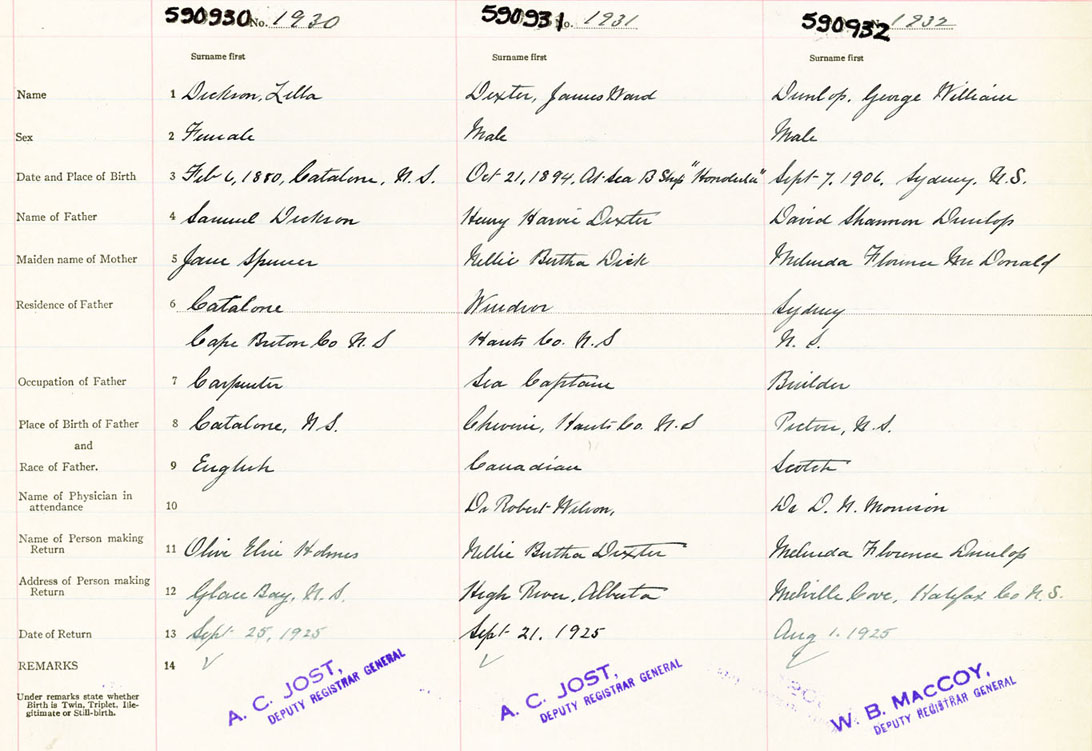 590930 No. 1930 590931 No. 1931 590932 1932
Surname first Surname first Surname first
Name 1 Dickson, Lella Dexter, James Ward Dunlop, George William
Sex 2 Female Male Male
Date and Place of Birth 3 Feb 6, 1880, Catalone, N.S. Oct 21, 1894, At Sea B Ship "Honolulu" Sept 7, 1906, Sydney, N.S.
Name of Father 4 Samuel Dickson Henry Harvie Dexter David Shannon Dunlop
Maiden name of Mother 5 Jane Spencer Nellie Bertha Dick Melinda Florence McDonald
Residence of Father 6 Catalone Windsor Sydney
Cape Breton Co N.S Hants Co. N.S N.S.
Occupation of Father 7 Carpenter Sea Captain Builder
Place of Birth of Father 8 Catalone, N.S. Cheverie, Hants Co. N.S Pictou, N.S.
and
Race of Father. 9 English Canadian Scotch
Name of Physician in
attendance 10 Dr Robert Wilson, Dr D. N. Morrison
Name of Person making
Return 11 Olive Elsie Holmes Nellie Bertha Dexter Melinda Florence Dunlop
Address of Person making
Return 12 Glace Bay, N.S. High River, Alberta Melville Cove, Halifax Co N.S.
Date of Return 13 Sept 25, 1925 Sept 21, 1925 Aug 1, 1925
REMARKS 14
Under remarks state whether
Birth is Twin, Triplet, Ille-
gitimate or Still-birth.
A. C. JOST,
DEPUTY REGISTRAR GENERAL
A. C. JOST,
DEPUTY REGISTRAR GENERAL
W. B. MACCOY,
DEPUTY REGISTRAR GENERAL